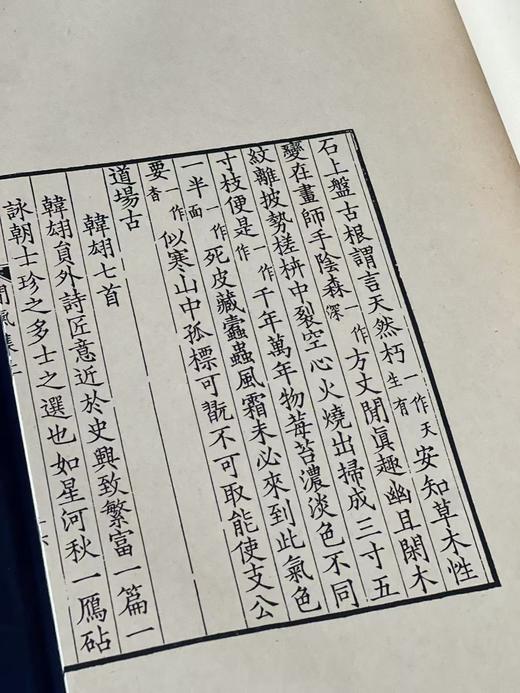 石上盤古根謂言天然朽一作天生有安知草木性
變在畫師手陰森一作深方丈閒眞趣幽且閑木
紋離披勢槎枿中裂空心火燒出掃成三寸五
寸枝便是一作千年萬年物莓苔濃淡色不同
一半一作面死皮藏蠹蟲風霜未必來到此氣色
要一作杳似寒山中孤標可翫不可取能使支公
道場古
韓翃七首
韓翃員外詩匠意近於史興致繁富一篇一
詠朝士珍之多士之選也如星河秋一鴈砧